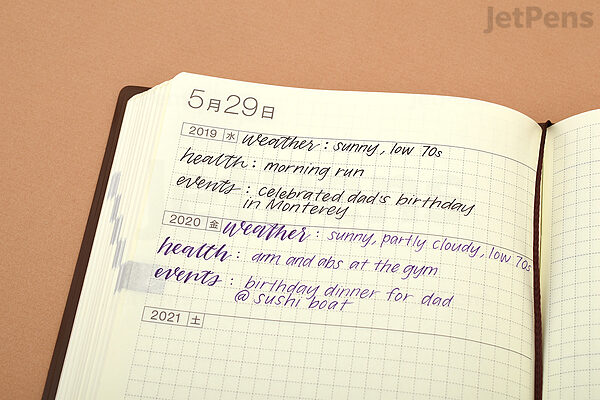 JetPens
5月29日
2019 水 weather : sunny, low 70s
health : morning run
events : celebrated dad's birthday
in Monterey
2020 金 weather : sunny, partly cloudy, low 70s
health : arm and abs at the gym
events : birthday dinner for dad
@ sushi boat
2021 土